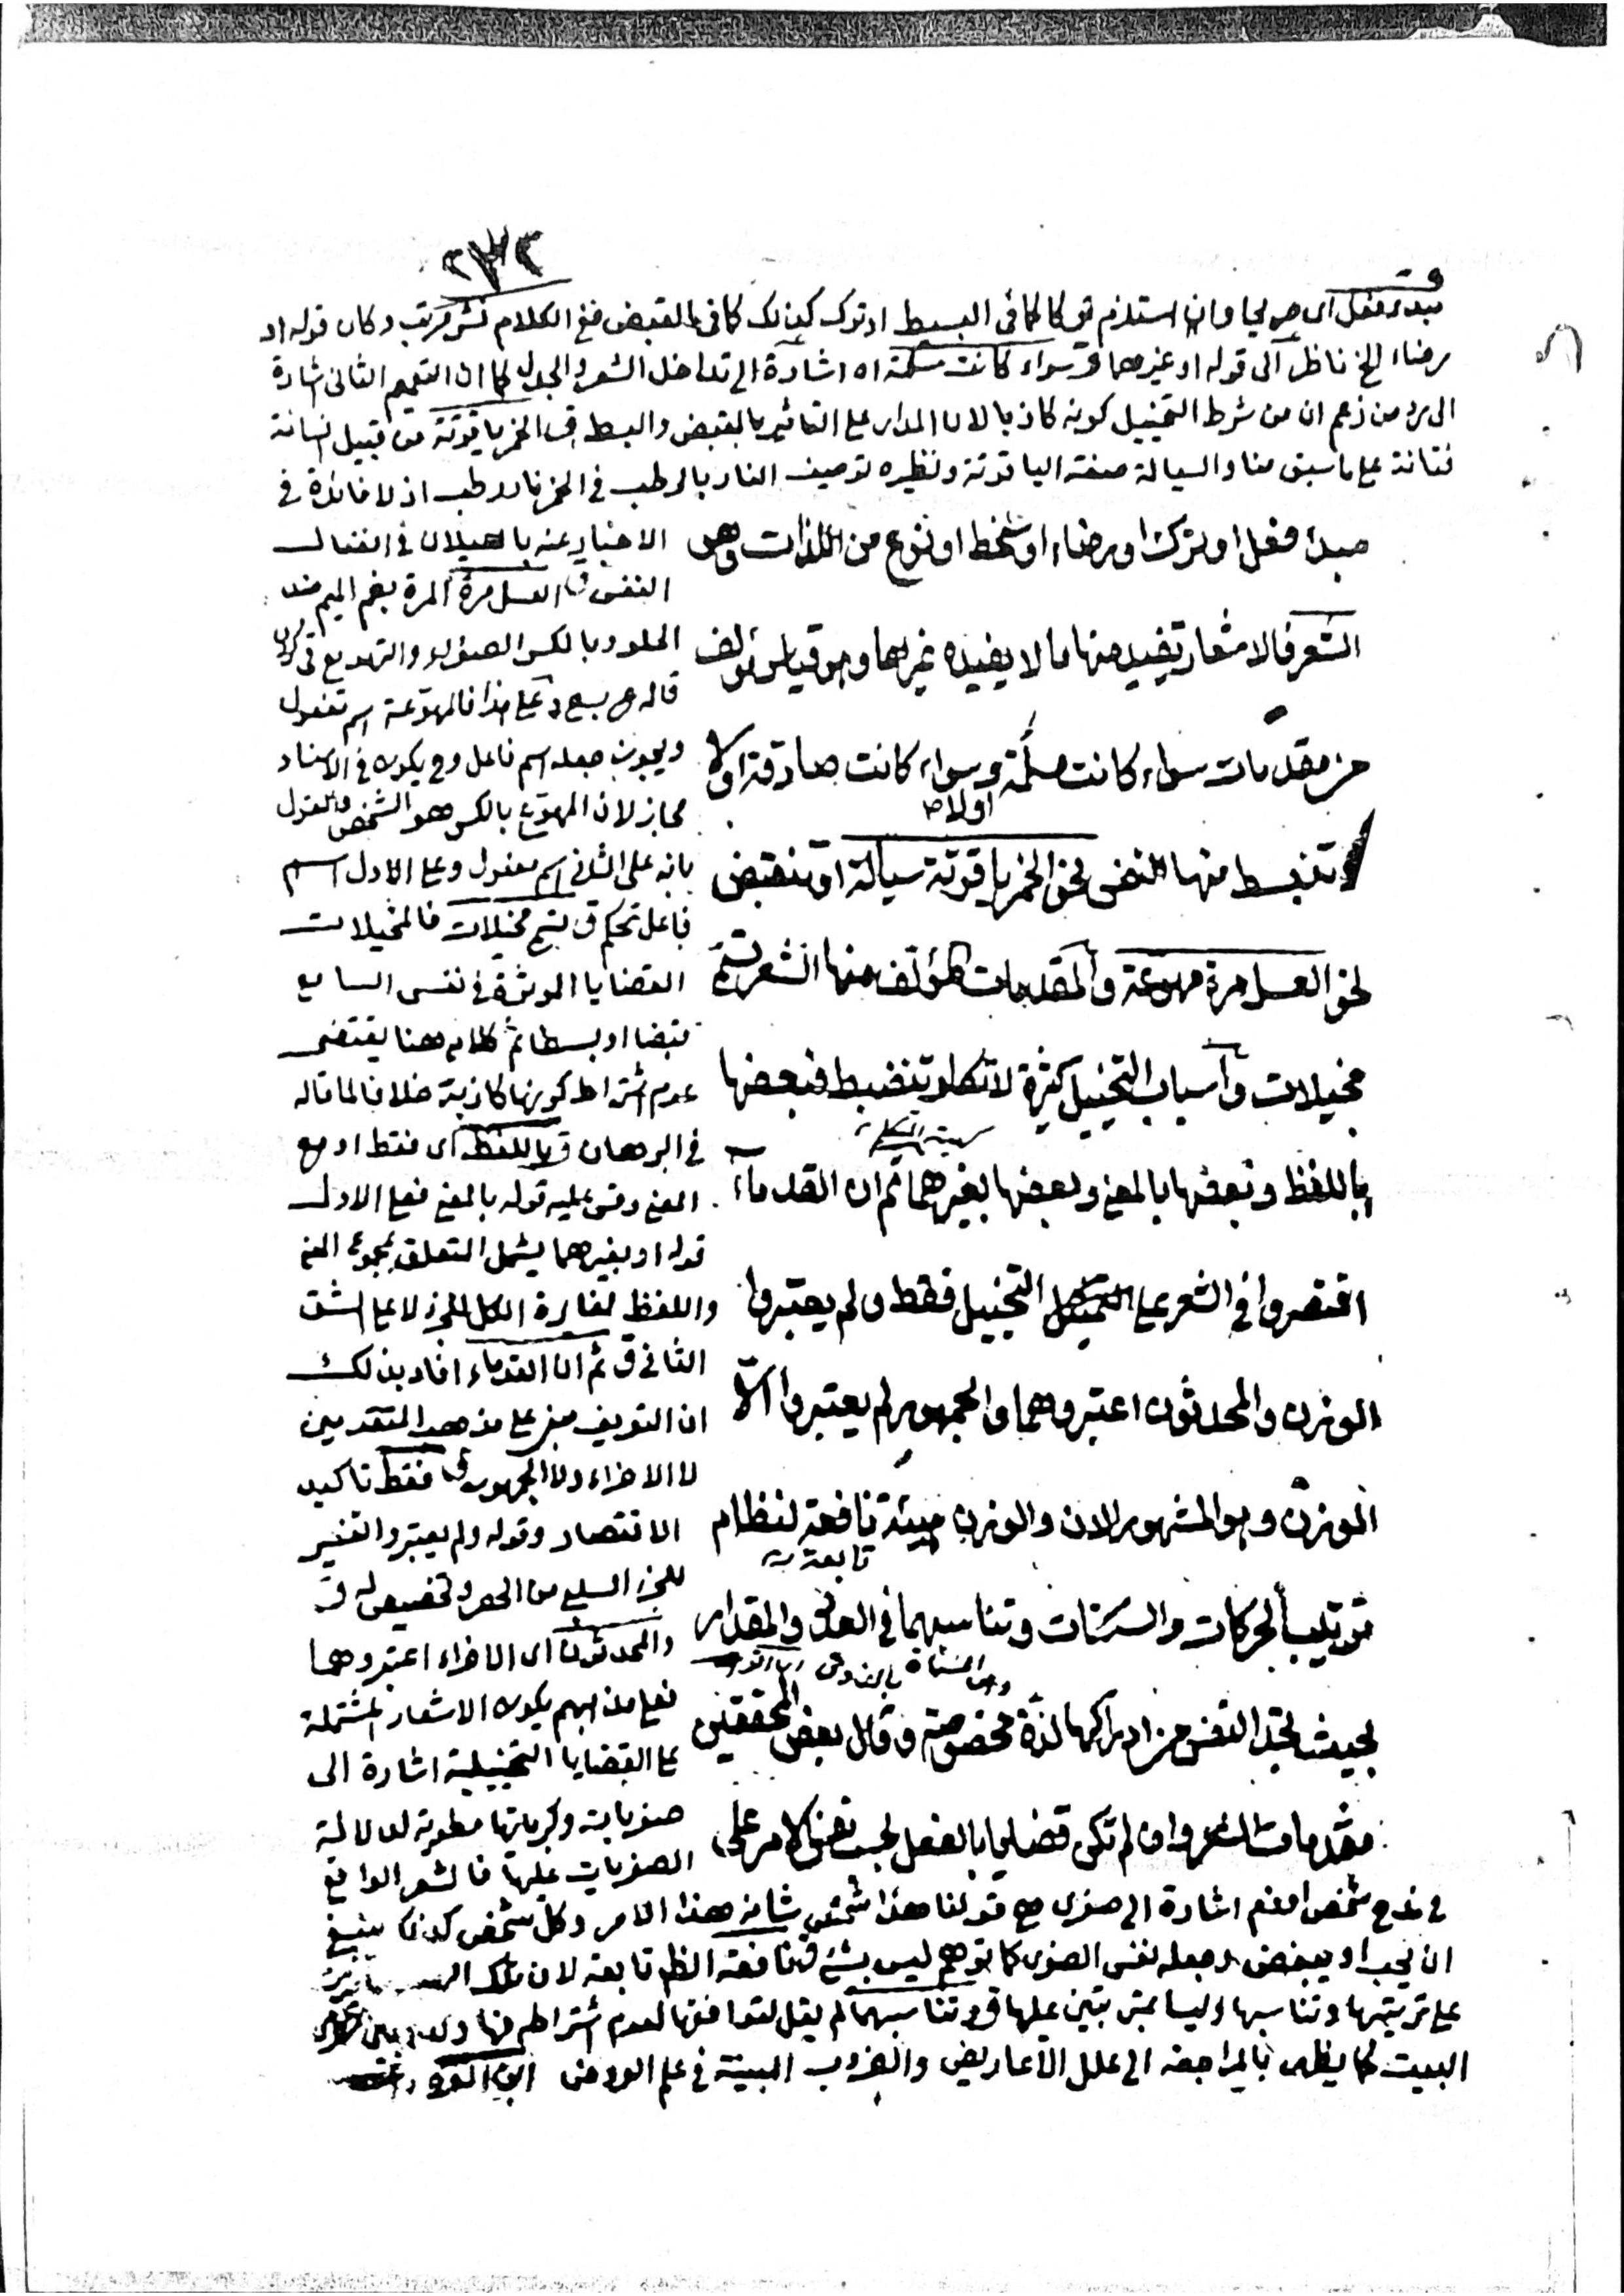 ٢٣٢
مبدء فعل اى صريحا وان استلزم تركا كما فى البسط او ترك كذلك كما فى القبض ففى الكلام نشر مرتب وكان قوله او
رضاء الخ ناظر الى قوله او غيرهما قوله سواء كانت مسلمة اه اشارة الى تداخل الشعر والجدل كما ان التعميم الثانى اشارة
الى رد من زعم ان من شرط التخييل كونه كاذبا لان المدار على التأثير بالقبض والبسط قوله الخمر ياقوتة من قبيل
على ما سبق منا والسيالة صفة الياقوتة ونظيره توصيف النار بالرطب فى الخمر نار رطب اذ لا فائدة فى
مبدء فعل او ترك او رضاء او سخط او نوع من اللذات وهى
الشعر فالاشعار تفيد منها ما لا يفيده غيرها وهو قياس مؤلف
من مقدمات سواء كانت مسلمة وسواء كانت صادقة اولا
اولا صح
تنبسط منها النفس نحو الخمر ياقوتة سيالة او تنقبض
نحو العسل مرة مهوعة والمقدمات المؤلف منها الشعر تسمى
مخيلات واسباب التخييل كثيرة لا تكاد تنضبط فبعضها
باللفظ وبعضها بالمعنى وبعضها بغيرهما ثم ان القدماء
اقتصروا فى الشعر على التخييل فقط ولم يعتبروا
الوزن والمحدثون اعتبروهما والجمهور لم يعتبروا الا
الوزن وهو المشهور الان والوزن هيئة نافعة لنظام
تابعة
ترتيب الحركات والسكنات وتناسبهما فى العدد والمقدار
بحيث تجد النفس من ادراكها لذة مخصوصة وقال بعض المحققين
مقدمات الشعر وان لم تكن قضايا بالفعل بحسب نفس الامر على
الاخبار عنه بالسيلان فى انفعال
النفس قوله العسل مرة المرة بضم الميم ضد
الحلو وبالكسر الصفراء والتهويع
قاله وعلى هذا فالمهوعة اسم مفعول
ويجوز جعله اسم فاعل وح يكون فى الاسناد
مجاز لان المهوع بالكسر هو الشخص والقول
بانه على الثانى اسم مفعول وعلى الاول اسم
فاعل تحكم قوله تسمى مخيلات فالمخيلات
القضايا الموثرة فى نفس السامع
قبضا او بسطا ثم كلامه هنا يقتضى
عدم اشتراط كونها كاذبة خلافا لما قاله
فى البرهان قوله باللفظ اى فقط او مع
المعنى وقس عليه قوله بالمعنى فعلى الاول
قوله او بغيرهما يشمل المتعلق بمجموع المعنى
واللفظ لمغايرة الكل للجزء لا على الشق
الثانى قوله ثم ان القدماء افاد بذلك
ان التعريف مبنى على مذهب المتقدمين
لا الاخراء ولا الجمهور قوله فقط تاكيد
الاقتصار وقوله ولم يعتبروا تفسير
للجزء السلبى من الحصر وتخصيص له قوله
والمحدثون اى الاخراء اعتبروهما
فعلى مذهبهم يكون الاشعار المشتملة
على القضايا التخييلية اشارة الى
صغريات وكبرياتها مطوية لدلالة
الصغريات عليها فالشعر الواقع
فى مدح شخص او ذم اشارة الى صغرى هى قولنا هذا شخص شانه هذا الامر وكل شخص كذلك ينبغى
ان يحب او يبغض وجعله نفس الصغرى كما توهم ليس بشئ قوله نافعة الظم تابعة لان تلك
على ترتيبها وتناسبها وليسا بمترتبين عليها قوله وتناسبهما لم يقل لتوافقها لعدم اشتراط
البيت كما يظهر بالمراجعة الى علل الاعاريض والضروب المبينة فى علم العروض